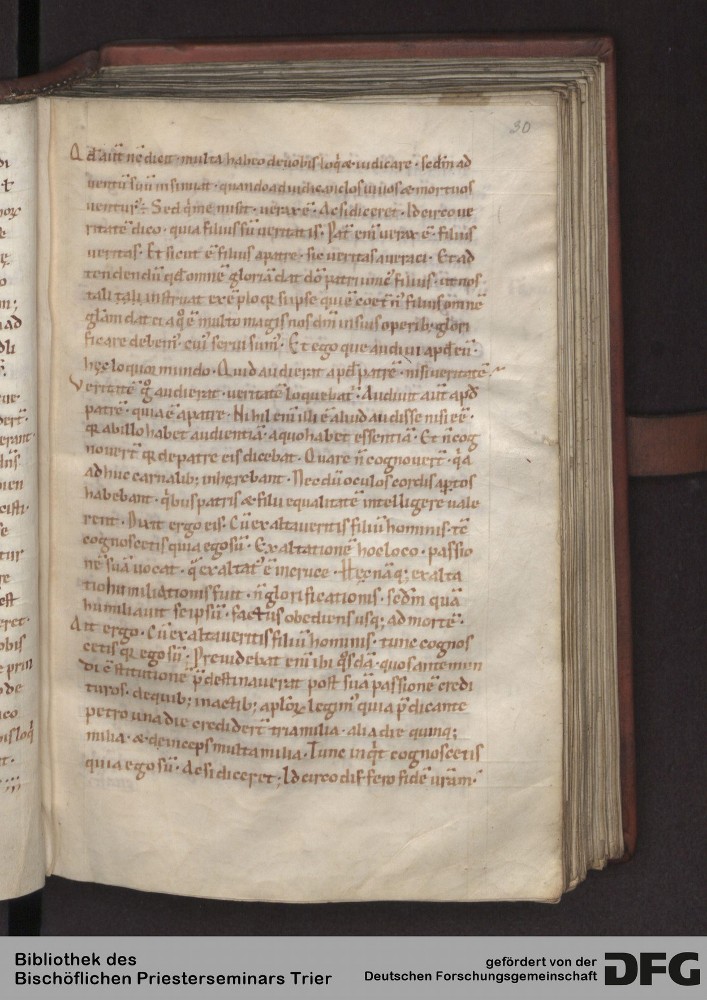 30
Qd aut̄ nc̄ dicit · multa habeo de uobis loq̄ & iudicare · sed m̄ ad
uentū suū insinuat · quando ad iudicandos uiuos & mortuos
uentur᷒ ÷ Sed q̄ me misit · uerax ē · Ac si diceret · Idcirco ue
ritatē dico · quia filius sū ueritatis · Pat̄ eni᷒ uerax ē · filius
ueritas · Et sicut ē filius a patre · sic ueritas a ueraci · Et ad
tendendū qd omnē gloriā dat dō patri unic᷒ filius · ut nos
tali instruat exēplo
gl̄am dat ei a q̊ ē multo magis nos dn̄m in suis operib; glori
ficare debem᷒ · cui᷒ serui sum᷒ · Et ego que audiui apd eū ·
hęc loquor mundo · Quid audierat apd patrē · nisi ueritatē
Veritatē g̊ audierat · ueritatē loquebat᷒ · Audiuit aut̄ apd
patrē · quia ē a patre · Nihil eni᷒ illi ē aliud audisse nisi eē ·
qr̄ ab illo habet audientiā · a quo habet essentiā · Et n̄ cog
nouert̄ qr̄ de patre eis dicebat · Quare n̄ cognouert̄ · q̄a
adhuc carnalib; inherebant · Necdū oculos cordis aptos
habebant · q̄bus patris & filii equalitatē intelligere uale
rent · Dixit ergo eis · Cū exaltaueritis filiū hominis · tc̄
cognoscetis quia ego sū · Exaltationē hoc loco · passio
nē suā uocat · q̄ exaltat᷒ ē in cruce · Hęc nāq; exalta
tio humiliationis fuit · n̄ glorificationis · sedm̄ quā
humiliauit seipsū · factus obediens usq; ad mortē ·
Ait ergo · Cū exaltaueritis filiū hominis · tunc cognos
cetis qr̄ ego sū · Preuidebat eni᷒ ibi q̊sdā · quos ante mun
di cstitutionē p̄destinauerat post suā passionē credi
turos · de quib; in actib; aplōr᷒ legim᷒ quia p̄dicante
petro una die credidert̄ tria milia · alia die quinq;
milia · & deinceps multa milia · Tunc inq̄t cognoscetis
quia ego sū · Ac si diceret; Idcirco differo fidē urām ·
Bibliothek des
Bischöflichen Priesterseminars Trier
gefördert von der
Deutschen Forschungsgemeinschaft
DFG